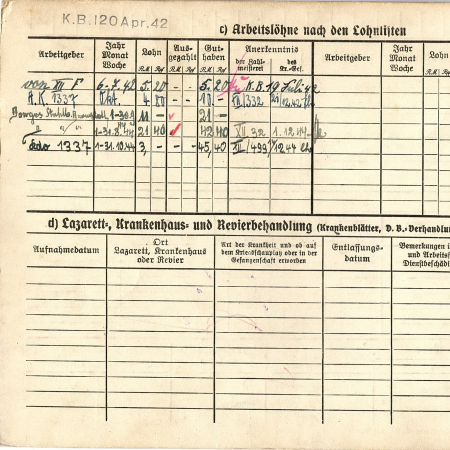 K.B. 120 Apr. 42
c) Arbeitslöhne nach den Lohnlisten
Arbeitgeber Jahr Monat Woche Lohn RM Rpf Ausgezahlt RM Rpf Guthaben RM Rpf Anerkenntnis der Zahlmeisterei des Kr.-Gef. Arbeitgeber Jahr Monat Woche Lohn RM
von XII F 6-7.42 5.20 - - 5.20 K.B. 19 Juli 42
A.K. 1337 4 80 - - 10 - XII/332
1-30.9 11 - 21 -
" " 1-31.8.44 21 40 42 40 XII 332 1.12.44
Kdo 1337 1-31.10.44 3, - - - 45,40 XII/499
d) Lazarett-, Krankenhaus- und Revierbehandlung (Krankenblätter, D. B.-Verhandlun
Aufnahmedatum Ort Lazarett, Krankenhaus oder Revier Art der Krankheit und ob auf dem Kriegsschauplatz oder in der Gefangenschaft erworben Entlassungsdatum Bemerkungen und Arbeitsf Dienstbeschädi